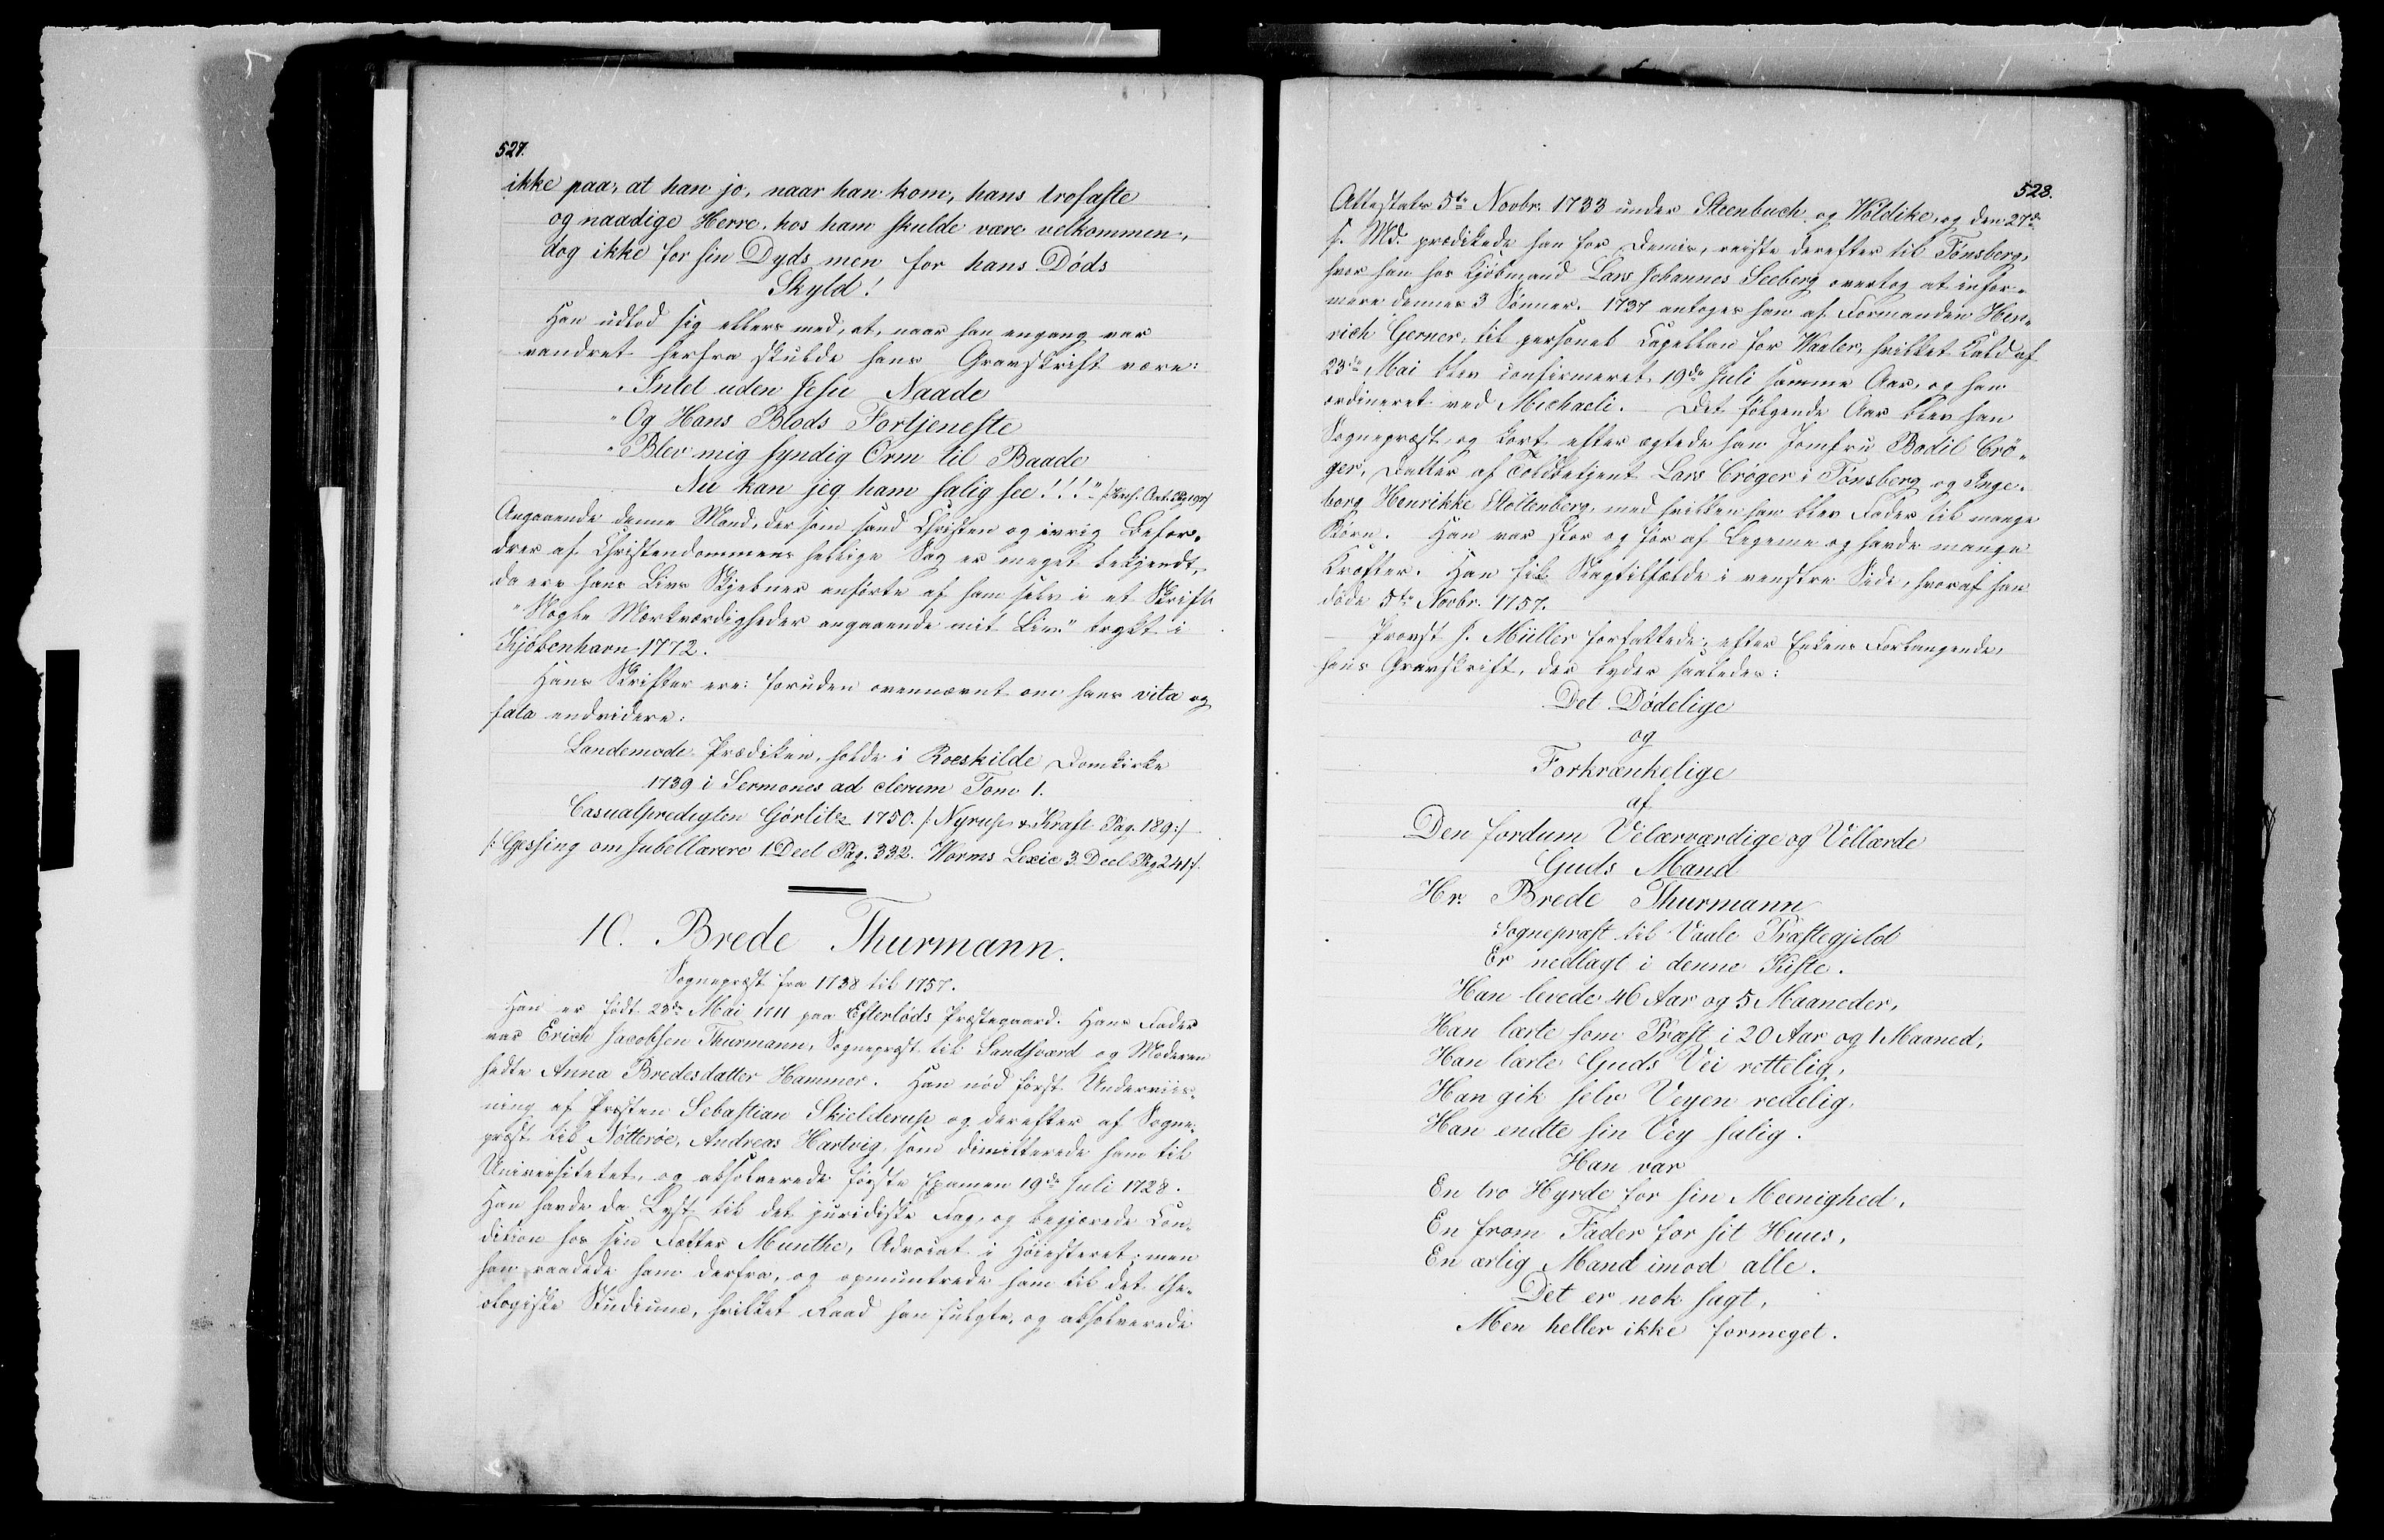 527.
ikke paa, at han jo, naar han kom, hans trofaste
og naadige Herre, hos ham skulde være velkommen,
dog ikke for sin Dyds men for hans Døds
Skyld!
Han udlod sig ellers med, at, naar han engang var
vandret herfra skulde hans Gravskrift være:
„Intet uden Jesu Naade
„Og Hans Blods Fortjeneste
„Blev mig syndig Orm til Baade
Nu kan jeg ham salig see!!!"
Angaaende denne Mand, der som sand Christen og ivrig Befor-
drer af Christendommens hellige Sag er meget bekjendt,
da ere hans Livs Skjebner anførte af ham selv i et Skrift
"Nogle Mærkværdigheder angaaende mit Liv." trykt i
Kjøbenhavn 1772.
Hans Skrifter ere: foruden ovennævnt om hans vita og
fata endvidere:
Landemode Prædiken, holdt i Roeskilde Domkirke
1739 i Sermones ad clerum Tom 1.
Casualpredigten Gørlitz 1750. /: Nyrup & Kraft Pag. 189:/
/: Giessing om Jubellærere 1 Deel Pag. 332. Worms Lexic 3. Deel Pag 241:/.
10. Brede Thurmann.
Sognepræst fra 1738 til 1757.
Han er født 23de Mai 1711 paa Efterløds Præstegaard. Hans Fader
var Erich Jacobsen Thurmann, Sognepræst til Sandsværd og Moderen
hedte Anna Bredesdatter Hammer. Han nød først Underviis-
ning af Præsten Sebastian Skielderup og derefter af Sogne-
præst til Nøtterøe, Andreas Hartvig, som dimitterede ham til
Universitetet, og absolverede første Examen 19de Juli 1728.
Han havde da Lyst til det juridiske Fag, og begjærede Con-
dition hos sin Fætter Munthe, Advocat i Høiesteret; men
han raadede ham derfra, og opmuntrede ham til det the-
ologiske Studium, hvilket Raad han fulgte, og absolverede
528.
Attestats 5te Novbr. 1733 under Steenbuch og Wøldike, og den 27de
s. Md. prædikede han for Demis, reiste derefter til Tønsberg,
hvor han hos Kjøbmand Lars Johannes Seeberg overtog at infor-
mere dennes 3 Sønner. 1737 antoges han af Formanden Hen-
rich Gerner, til personel Capellan for Waaler, hvilket Kald af
23de Mai blev confirmeret 19de Juli samme Aar, og han
ordineret ved Michaeli. Det følgende Aar blev han
Sognepræst og kort efter ægtede han Jomfru Bodil Crø-
ger, Datter af Toldbetjent Lars Crøger i Tønsberg og Inge-
borg Henrikke Stoltenberg, med hvilken han blev Fader til mange
Børn. Han var stor og før af Legeme og havde mange
Kræfter. Han fik Slagtilfælde i venstre Side, hvoraf han
døde 5te Novbr. 1757.
Provst J. Müller forfattede, efter Enkens Forlangende,
hans Gravskrift, der lyder saaledes:
Det Dødelige
og
Forkrænkelige
af
Den fordum Velærværdige og Vellærde
Guds Mand
Hr. Brede Thurmann
Sognepræst til Vaale Præstegjeld
Er nedlagt i denne Kiste.
Han levede 46 Aar og 5 Maaneder,
Han lærte som Præst i 20 Aar og 1 Maaned,
Han lærte Guds Vei rettelig,
Han gik selv Veyen redelig,
Han endte sin Vey salig.
Han var
En tro Hyrde for sin Meenighed,
En from Fader for sit Huus,
En ærlig Mand imod alle.
Det er nok sagt,
Men heller ikke formeget.